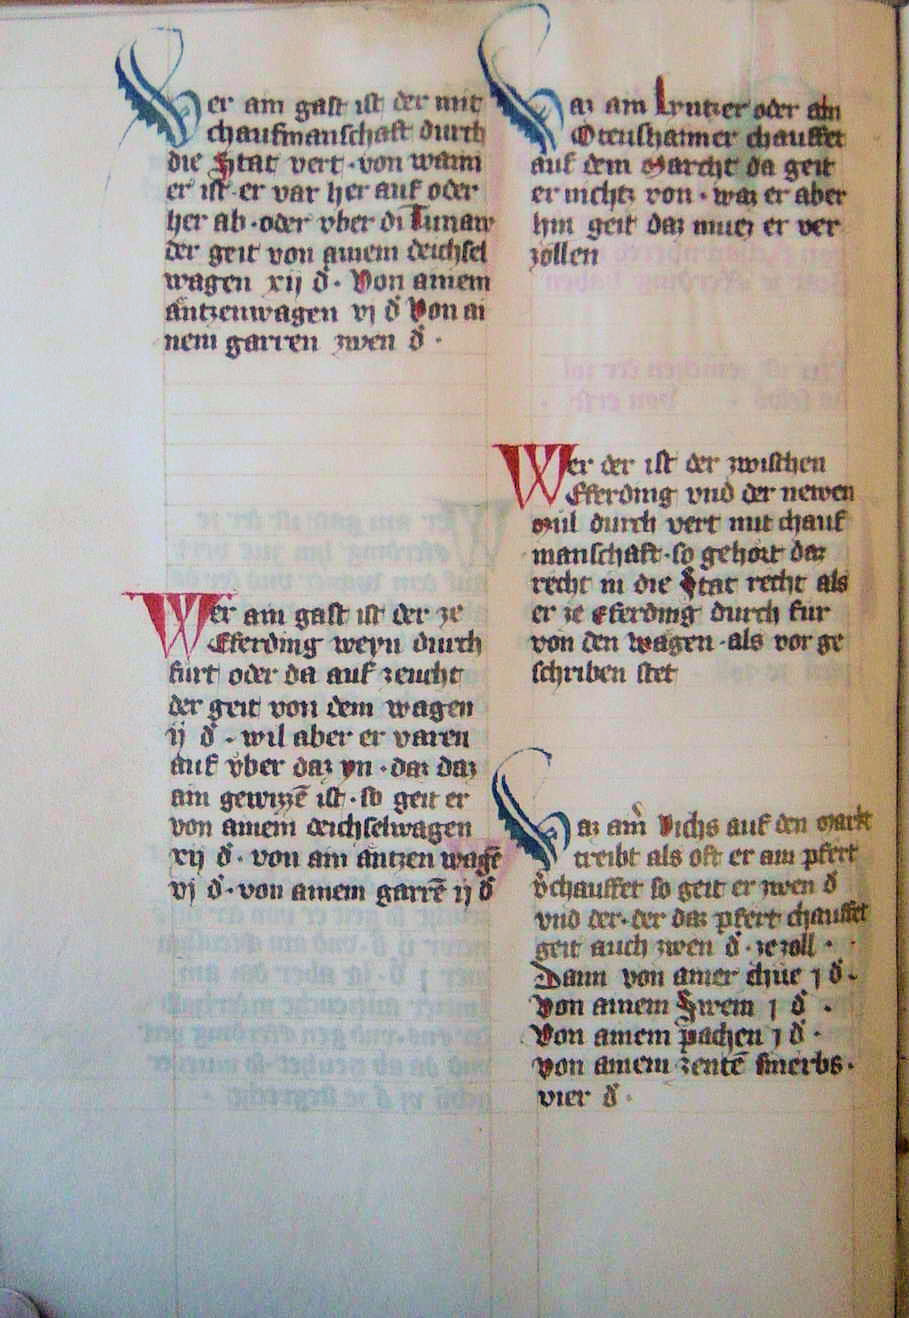 Wer ain gast ist der mit
chaufmanschaft durch
die Stat vert · von wann
er ist · er var her auf oder
her ab · oder vber di Tunaw
der geit von ainem deichsel
wagen xij d · Von ainem
antzenwagen vj d Von ai
nem garren zwen d ·
Wer ain gast ist der ze
Efferding weyn durch
furt oder da auf zeucht
der geit von dem wagen
ij d · wil aber er varen
auf vber daz yn · daz daz
am gewizze ist · so geit er
von ainem deichselwagen
xij d · von ain antzen wage
vj d · von ainem garre ij d
Waz ain Lintzer oder ain
Otenshaimer chauffet
auf dem Marcht da geit
er nichtz von · waz er aber
hin geit daz muez er ver
zollen
Wer der ist der zwischen
Efferding vnd der newen
Mul durch vert mit chauf
manschaft · so gehort daz
recht in die Stat recht als
er ze Efferding durch fur
von den wagen · als vor ge
schriben stet
Waz ain Vichs auf den Markt
treibt als oft er ain pfert
vchauffet so geit er zwen d
vnd der · der daz pfert chauffet
geit auch zwen d · ze zoll ·
Dann von ainer chue j d ·
Von ainem Swein j d ·
Von ainem pachen j d ·
Von ainem zente smerbs ·
vier d ·